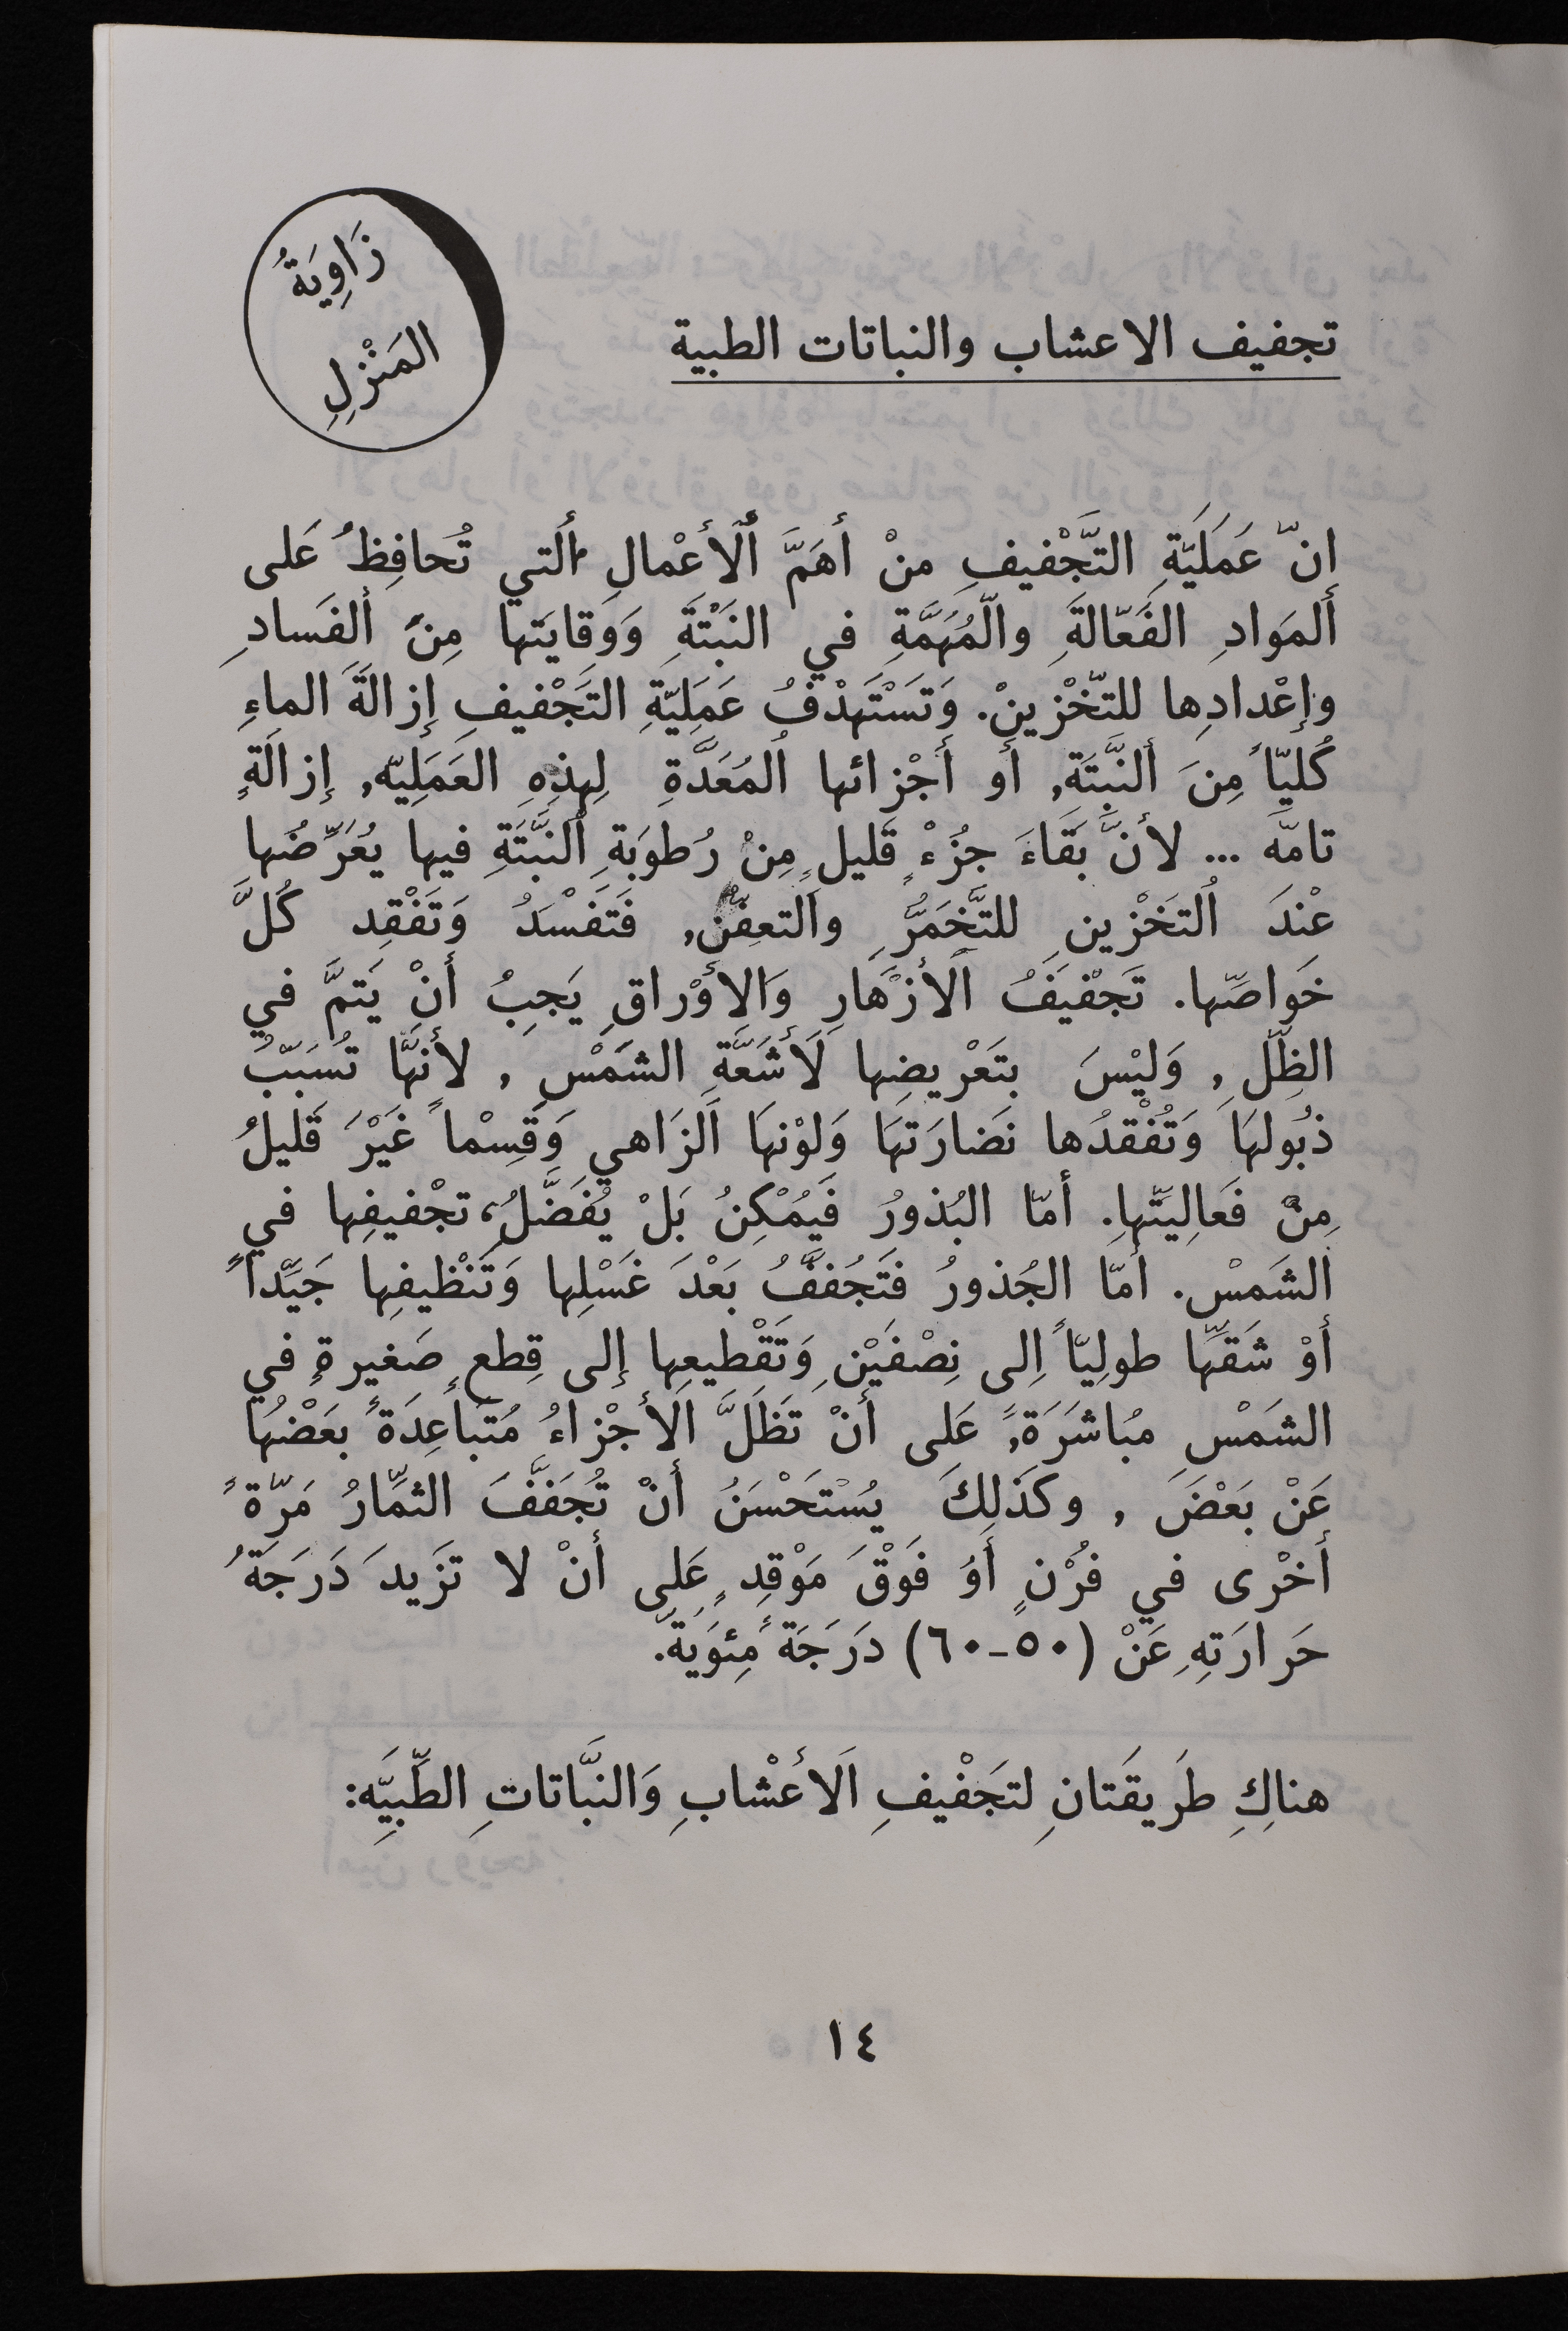 زَاوِيَةُ
المَنْزِلِ
تجفيف الاعشاب والنباتات الطبية
إنّ عَمَلَيّةِ التَّجْفيفِ منْ أهَمَّ ألَأعْمالِ ألَتي تُحافِظُ عَلى
ألمَوادِ الفَعّالَةِ والمُهَمَّةِ في النَبْتَةِ وَوَقايَتها مِنَ ألفَسادِ
وإعْدادِها للتّخْزينْ. وَتَسْتَهدْفُ عَمَلِيّةِ التَجْفيفِ إزالَةَ الماءِ
كُليّاً مِنَ ألنَبَّتَةِ, أو أجْزائها اُلمُعَدَّةِ لِهذِهِ العَمَلِيّه, إزالَةٍ
تامّه ... لأنَّ بَقَاءَ جزُءْ قَليلٍ مِنْ رُطوبَةِ اْلنَبَّتَةِ فيها يُعَرِّضُها
عْندَ اُلتَخْزينِ للتَّخَمَرُّ والَتعِفنُّ, فَتَفسْدُ وَتَفْقِد كُلَّ
خَواصِّها. تَجَفْيَفُ اَلأزْهَارِ وَالأوْراقِ يَجِبُ أنْ يَتمَّ في
الظِلّ , وَليْسَ بتَعْريضِها لَأشَعَّةِ الشَمَسْ , لأنهَّا تُسَبّبُ
ذبُولهَا وَتُفْقدُها نَضارَتهَا وَلوْنهَا اَلزَاهي وَقِسْماً غَيْرَ قَليلُ
مِنْ فَعَالِيَتّهاِ. أمّا البُذورُ فَيُمْكِنُ بَلْ يُفَضَّلُ، تجْفيفِها في
الشَمسْ. أمّا الجُذورُ فتَجُففَُّ بَعْدَ غَسْلِها وَتَنْظيفِها جَيّداً
أوْ شَقِّها طولِيّاً اِلى نِصْفَيْنِ وَتَقْطيعِها إلى قِطعٍ صَغيرةٍ في
الشَمسْ مبُاشَرَة, عَلى أنْ تظَلَّ اَلأجْزاءُ مُتَباعِدَةً بعَضْهُا
عَنْ بَعْضَ , وكَذَلِكَ يسُتَحْسَنُ أنْ تُجَففََّ الثمِّارُ مَرّةً
أخْرى في فرُنٍ أوَ فَوْقَ مَوْقدٍ عَلى أنْ لا تزَيدَ دَرَجَةُ
حَرارَتهِ عَنْ (٥٠-٦٠) دَرَجَة مِئوَيةّ.
هناكِ طرَيقَتانِ لتَجَفْيفِ اَلأعْشابِ وَالنَبّاتاتِ الطِّبيَّه:
١٤